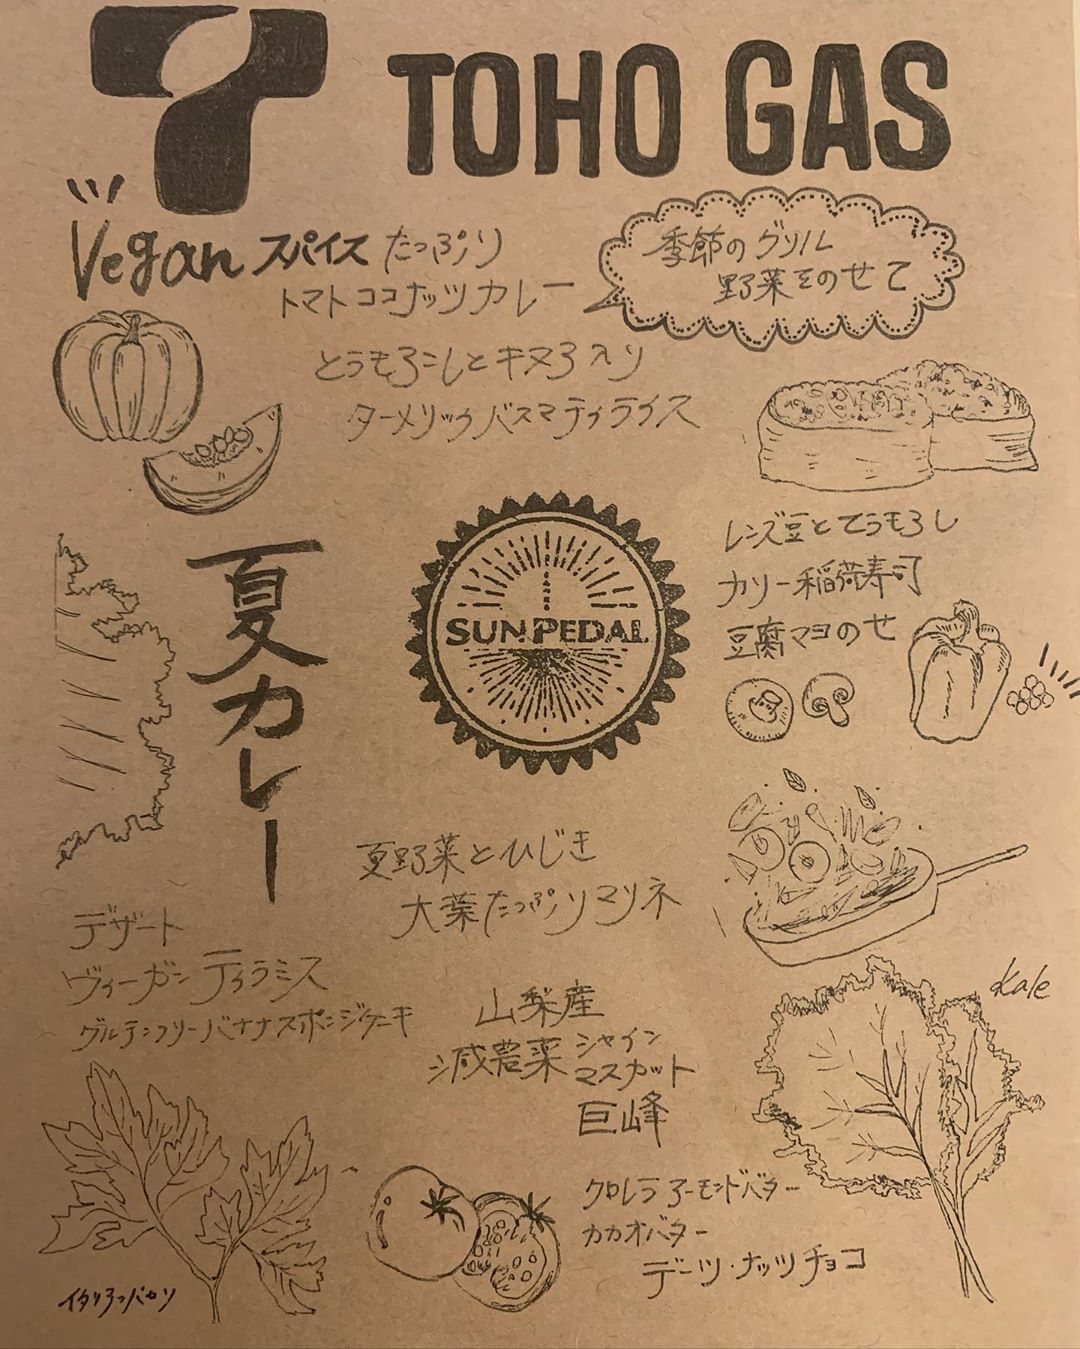 TOHO GAS
Vegan スパイス たっぷり
トマトココナッツカレー
季節のグリル
野菜をのせて
とうもろこしとキヌア入り
ターメリックバスマティライス
レンズ豆ととうもろし
カリー稲荷寿司
豆腐マヨのせ
夏カレー
SUN PEDAL
夏野菜とひじき
大葉たっぷりマリネ
デザート
ヴィーガン ティラミス
グルテンフリーバナナスポンジケーキ
山梨産
減農薬 シャイン
マスカット
巨峰
Kale
クロレラ アーモンドバター
カカオバター
デーツ・ナッツチョコ
イタリアンパセリ